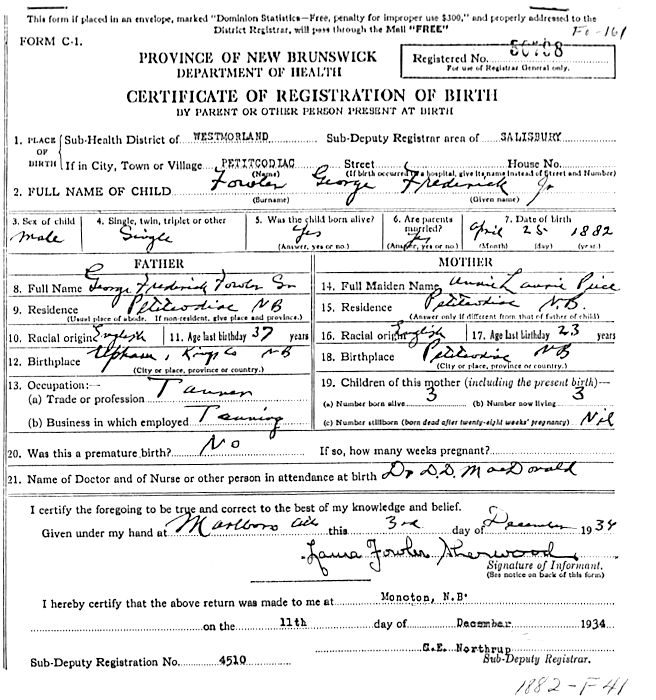 This form if placed in an envelope, marked "Dominion Statistics—Free, penalty for improper use $300," and properly addressed to the
District Registrar, will pass through the Mail "FREE"
FORM C-1.
PROVINCE OF NEW BRUNSWICK
DEPARTMENT OF HEALTH
Registered No.
For use of Registrar General only.
CERTIFICATE OF REGISTRATION OF BIRTH
BY PARENT OR OTHER PERSON PRESENT AT BIRTH
1. PLACE OF BIRTH Sub-Health District of WESTMORLAND Sub-Deputy Registrar area of SALISBURY
If in City, Town or Village PETITCODIAC Street House No.
(Name) (If birth occurred in a hospital, give its name instead of Street and Number)
2. FULL NAME OF CHILD Fowler George Frederick Jr
(Surname) (Given name)
3. Sex of child 4. Single, twin, triplet or other 5. Was the child born alive? 6. Are parents married? 7. Date of birth
male Single Yes Yes April 25 1882
(Answer, yes or no.) (Answer, yes or no.) (Month) (day) (year.)
FATHER
8. Full Name George Frederick Fowler Sr
9. Residence Petitcodiac NB
(Usual place of abode. If non-resident, give place and province.)
10. Racial origin English 11. Age last birthday 37 years
12. Birthplace Upham, Kings Co NB
(City or place, province or country.)
13. Occupation:—
(a) Trade or profession Tanner
(b) Business in which employed Tanning
MOTHER
14. Full Maiden Name Annie Laurie Price
15. Residence Petitcodiac NB
(Answer only if different from that of father of child)
16. Racial origin English 17. Age last birthday 23 years
18. Birthplace Petitcodiac NB
(City or place, province or country.)
19. Children of this mother (including the present birth)—
3 3
(a) Number born alive (b) Number now living
(c) Number stillborn (born dead after twenty-eight weeks' pregnancy) Nil
20. Was this a premature birth? No If so, how many weeks pregnant?
21. Name of Doctor and of Nurse or other person in attendance at birth Dr D.D. MacDonald
I certify the foregoing to be true and correct to the best of my knowledge and belief.
Given under my hand at Marlboro this 3rd day of December 1934
Laura Fowler Sherwood
Signature of Informant.
(See notice on back of this form)
I hereby certify that the above return was made to me at Moncton, N.B.
on the 11th day of December 1934
C.E. Northrup
Sub-Deputy Registrar.
Sub-Deputy Registration No. 4510
1882-F-41